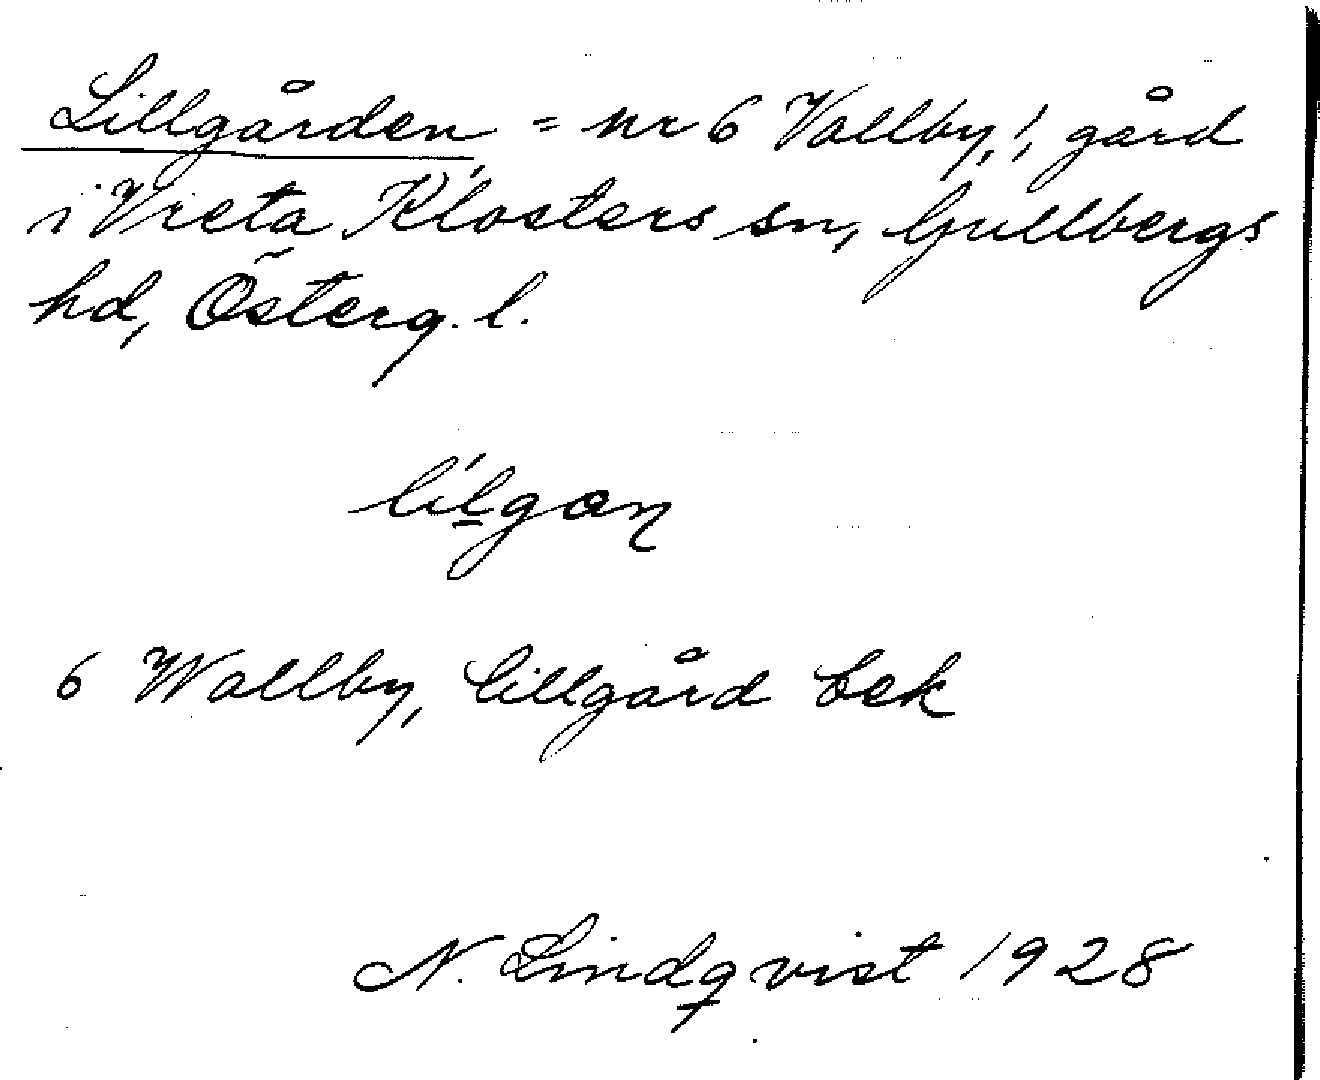 Lillgården = nr 6 Vallby, !, gård
i Vreta Klosters sn, Gullbergs
hd, Österg. l.
lílgan
6 Wallby, lillgård bek
N. Lindqvist 1928